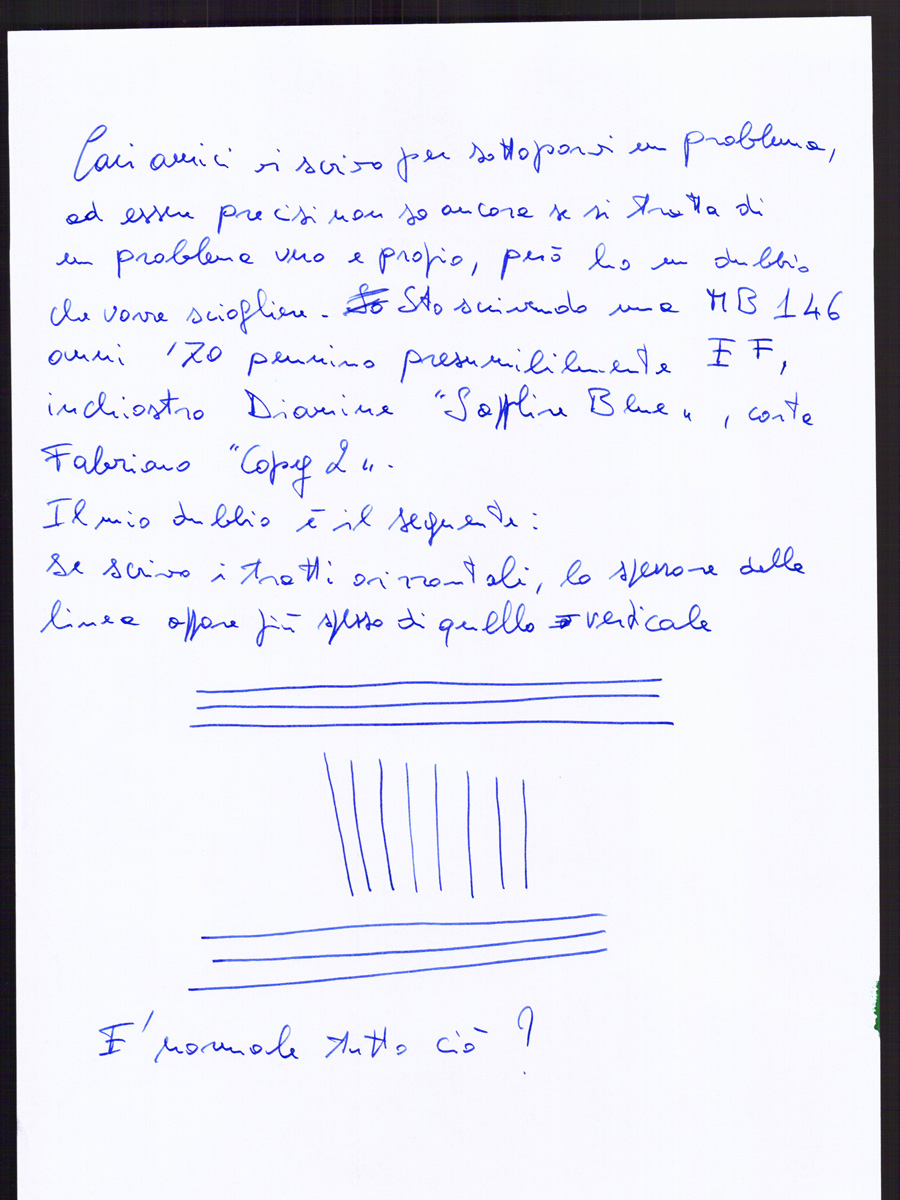 Cari amici vi scrivo per sottoporvi un problema,
ad essere precisi non so ancora se si tratta di
un problema vero e propio, però ho un dubbio
che vorrei sciogliere. So Sto scrivendo una MB 146
anni '70 pennino presumibilmente EF,
inchiostro Diamine "Sapphire Blue", carta
Fabriano "Copy 2".
Il mio dubbio è il seguente:
se scrivo i tratti orizzontali, lo spessore della
linea appare più spesso di quello verticale
E' normale tutto ciò?